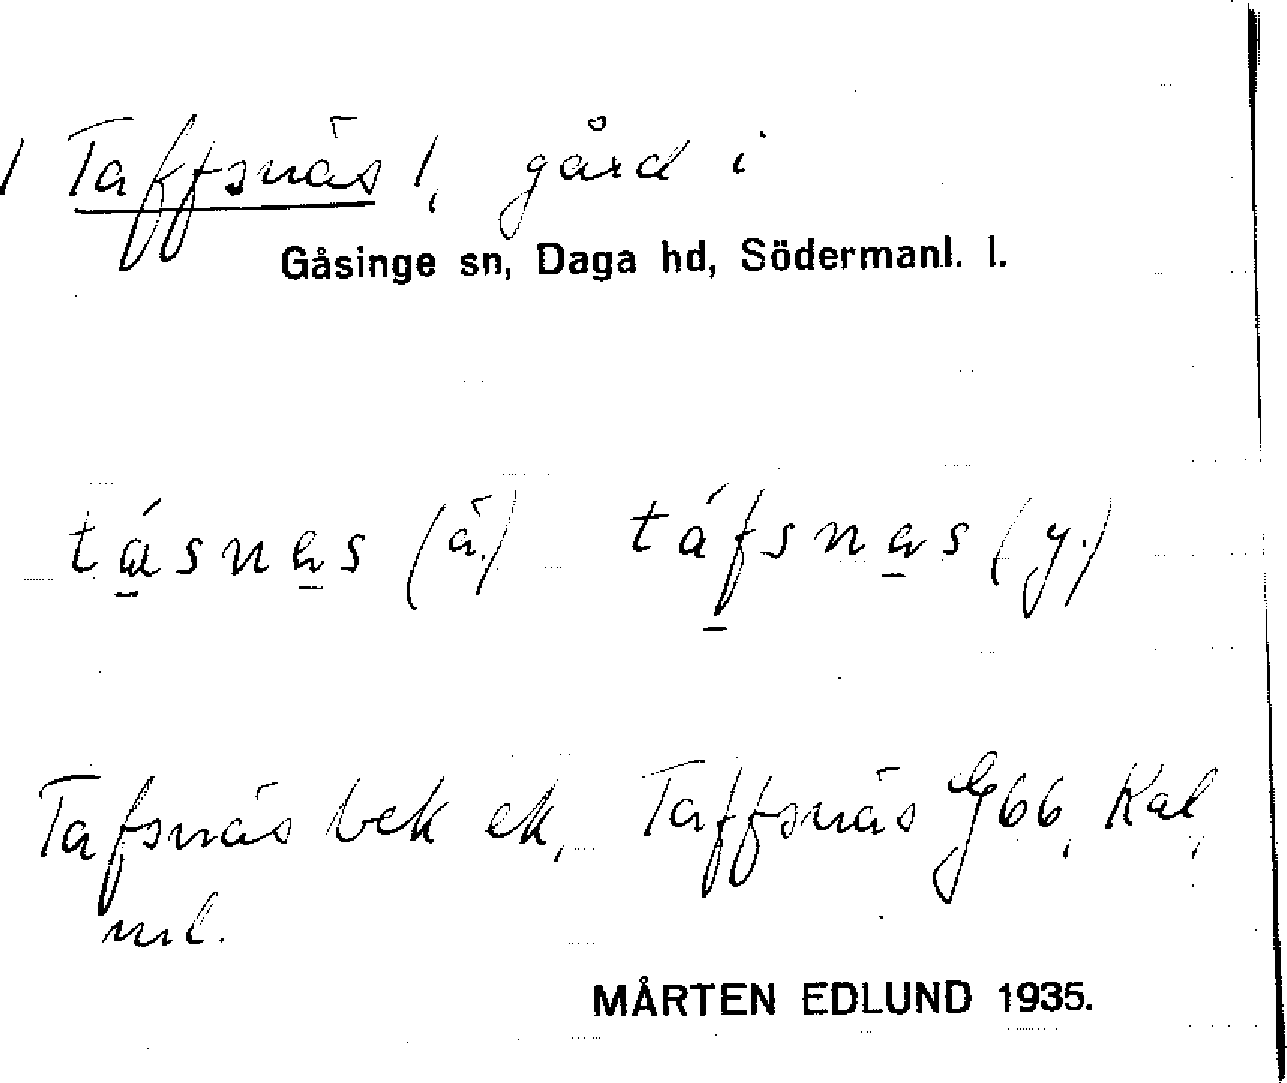 / Taffsnäs /, gård i
Gåsinge sn, Daga hd, Södermanl. l.
tásnas (ä.) táfsnas (y.)
Tafsnäs bek ek, Taffsnäs G66, Kal,
ml.
MÅRTEN EDLUND 1935.